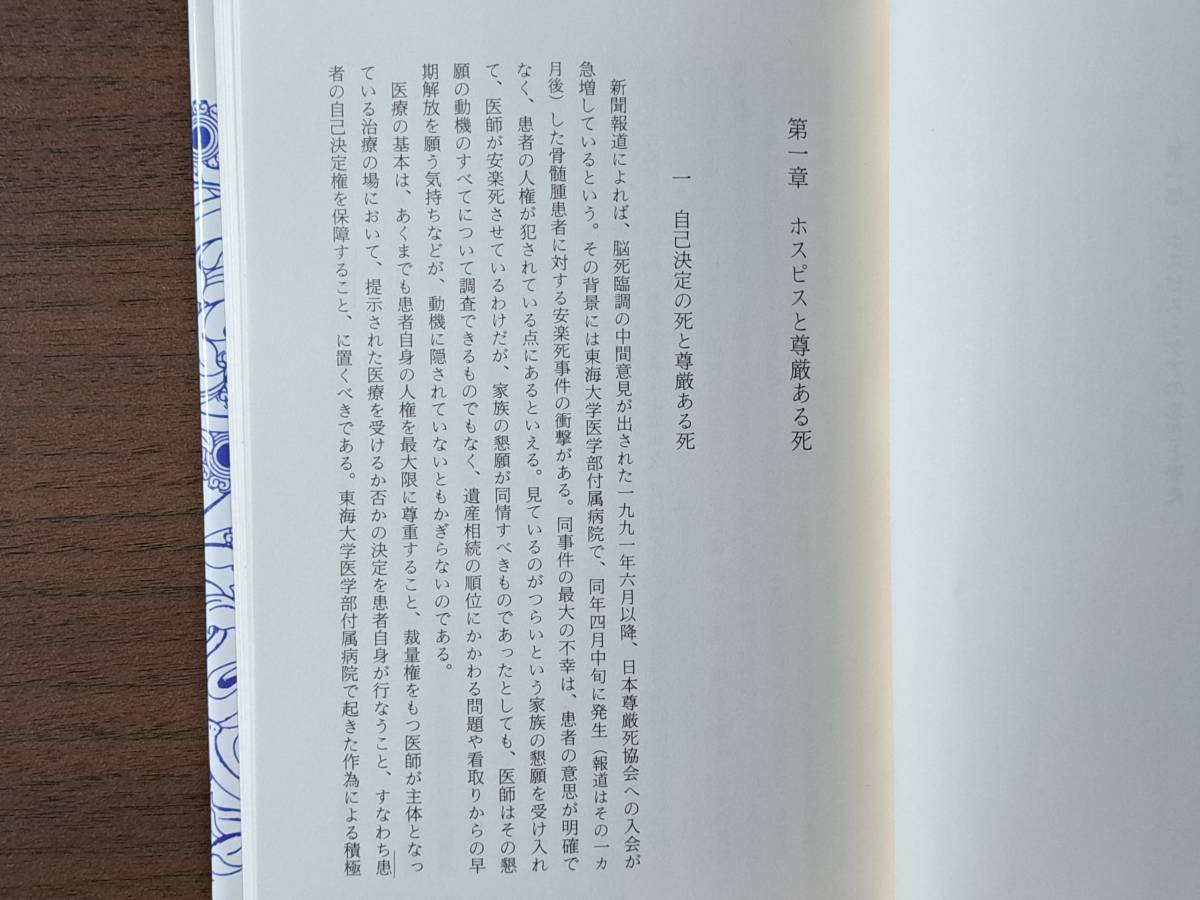 第一章　ホスピスと尊厳ある死
一　自己決定の死と尊厳ある死
新聞報道によれば、脳死臨調の中間意見が出された一九九一年六月以降、日本尊厳死協会への入会が
急増しているという。その背景には東海大学医学部付属病院で、同年四月中旬に発生（報道はその一ヵ
月後）した骨髄腫患者に対する安楽死事件の衝撃がある。同事件の最大の不幸は、患者の意思が明確で
なく、患者の人権が犯されている点にあるといえる。見ているのがつらいという家族の懇願を受け入れ
て、医師が安楽死させているわけだが、家族の懇願が同情すべきものであったとしても、医師はその懇
願の動機のすべてについて調査できるものでもなく、遺産相続の順位にかかわる問題や看取りからの早
期解放を願う気持ちなどが、動機に隠されていないともかぎらないのである。
医療の基本は、あくまでも患者自身の人権を最大限に尊重すること、裁量権をもつ医師が主体となっ
ている治療の場において、提示された医療を受けるか否かの決定を患者自身が行なうこと、すなわち患
者の自己決定権を保障すること、に置くべきである。東海大学医学部付属病院で起きた作為による積極